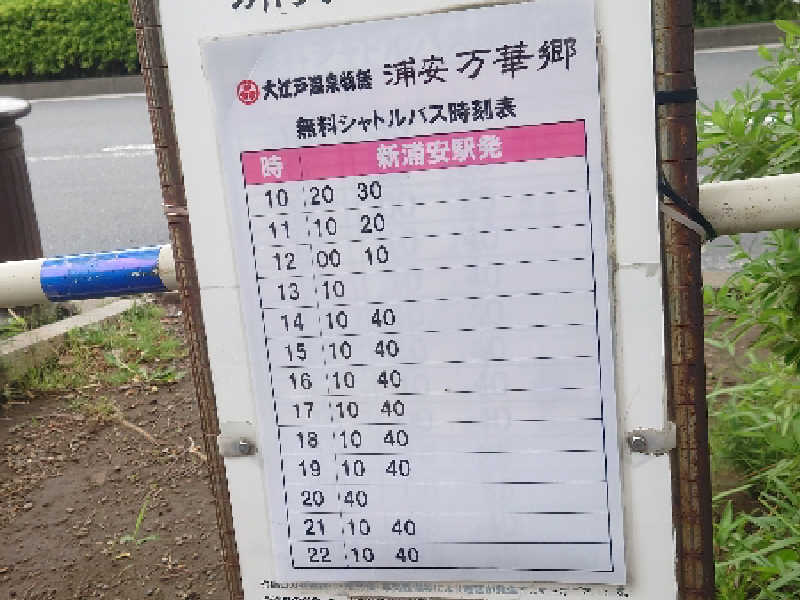 大江戸温泉物語 浦安万華郷
無料シャトルバス時刻表
時 新浦安駅発
10 20 30
11 10 20
12 00 10
13 10
14 10 40
15 10 40
16 10 40
17 10 40
18 10 40
19 10 40
20 40
21 10 40
22 10 40